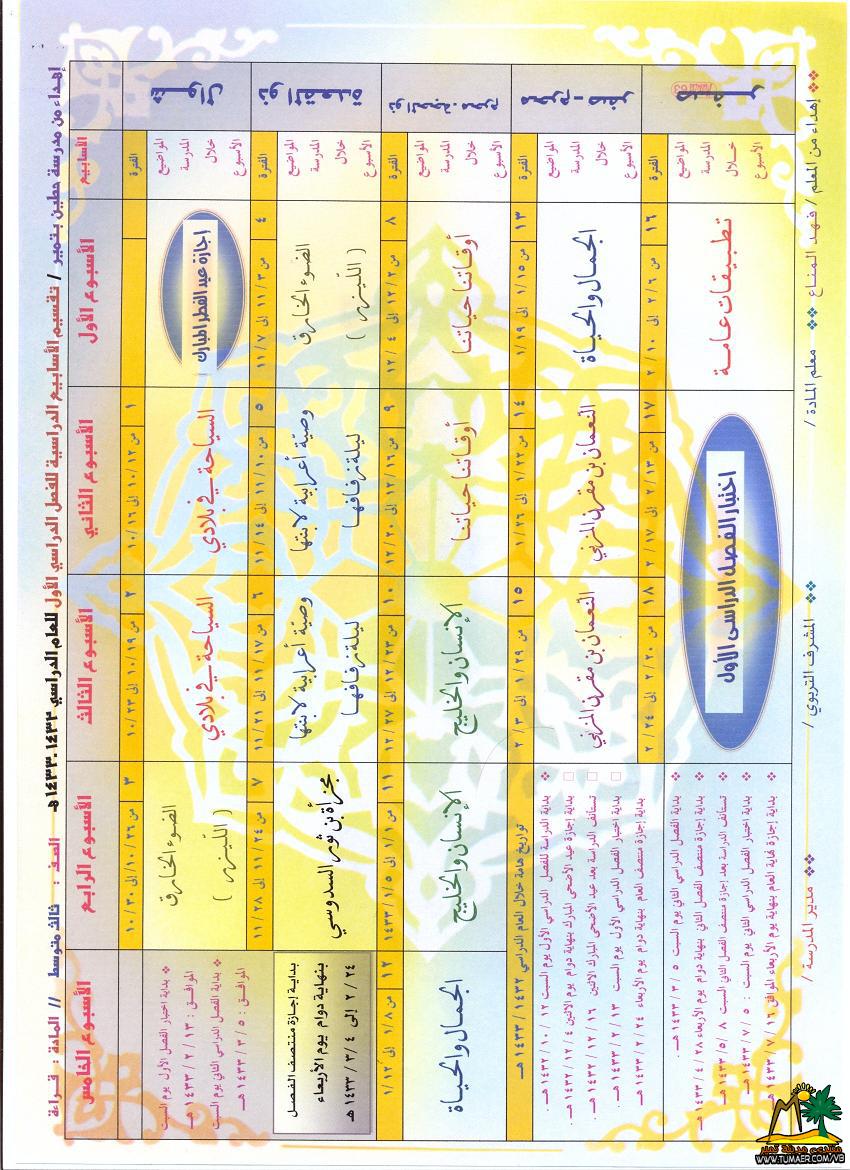 إهداء من مدرسة حطين بتمير / تقسيم الأسابيع الدراسية للفصل الدراسي الأول للعام الدراسي ١٤٣٢-١٤٣٣هـ الصف : ثالث متوسط // المادة : قراءة
الأسابيع
الأسبوع الأول
الأسبوع الثاني
الأسبوع الثالث
الأسبوع الرابع
الأسبوع الخامس
شوال
الفترة
المواضيع المدرسة خلال الأسبوع
إجازة عيد الفطر المبارك
١
من ١٠/١٢ إلى ١٠/١٦
السياحة في بلادي
٢
من ١٠/١٩ إلى ١٠/٢٣
السياحة في بلادي
٣
من ١٠/٢٦ إلى ١٠/٣٠
الضوء الخارق
( الليزر )
❖ بداية اختبار الفصل الأول يوم السبت
الموافق : ١٣ / ٢ / ١٤٣٣ هـ
❖ بداية الفصل الدراسي الثاني يوم السبت
الموافق : ٥ / ٣ / ١٤٣٣ هـ
ذو القعدة
الفترة
المواضيع المدرسة خلال الأسبوع
٤
من ١١/٣ إلى ١١/٧
الضوء الخارق
( الليزر )
٥
من ١١/١٠ إلى ١١/١٤
وصية أعرابية لابنتها
ليلة زفافها
٦
من ١١/١٧ إلى ١١/٢١
وصية أعرابية لابنتها
ليلة زفافها
٧
من ١١/٢٤ إلى ١١/٢٨
مجزأة بن ثور السدوسي
بداية إجازة منتصف الفصل
بنهاية دوام يوم الأربعاء
٢/٢٤ إلى ٣/٤ / ١٤٣٣ هـ
ذو الحجة - محرم
الفترة
المواضيع المدرسة خلال الأسبوع
٨
من ١٢/٢ إلى ١٢/٤
أوقاتنا حياتنا
٩
من ١٢/١٦ إلى ١٢/٢٠
أوقاتنا حياتنا
١٠
من ١٢/٢٣ إلى ١٢/٢٧
الإنسان والخليج
١١
من ١/١ إلى ١/٥ /١٤٣٣
الإنسان والخليج
١٢
من ١/٨ إلى ١/١٢
الجمال والحياة
محرم - صفر
الفترة
المواضيع المدرسة خلال الأسبوع
١٣
من ١/١٥ إلى ١/١٩
الجمال والحياة
١٤
من ١/٢٢ إلى ١/٢٦
النعمان بن مقرن المزني
١٥
من ١/٢٩ إلى ٢/٣
النعمان بن مقرن المزني
تواريخ هامة خلال العام الدراسي ١٤٣٢ / ١٤٣٣ هـ
❖ بداية الدراسة للفصل الدراسي الأول يوم السبت ١٢ / ١٠ / ١٤٣٢ هـ .
□ بداية إجازة عيد الأضحى المبارك بنهاية دوام يوم الاثنين ٤ / ١٢ / ١٤٣٢ هـ .
□ تستأنف الدراسة بعد عيد الأضحى المبارك الاثنين ١٦ / ١٢ / ١٤٣٢ هـ .
□ بداية اختبار الفصل الدراسي الأول يوم السبت ١٣ / ٢ / ١٤٣٣ هـ .
❖ بداية إجازة منتصف العام بنهاية دوام يوم الأربعاء ٢٤ / ٢ / ١٤٣٣ هـ .
صفر
الفترة
المواضيع المدرسة خلال الأسبوع
١٦
من ٢/٦ إلى ٢/١٠
تطبيقات عامة
١٧
من ٢/١٣ إلى ٢/١٧
١٨
من ٢/٢٠ إلى ٢/٢٤
اختبار الفصل الدراسي الأول
❖ بداية الفصل الدراسي الثاني يوم السبت ٥ / ٣ / ١٤٣٣ هـ .
❖ بداية إجازة منتصف الفصل الثاني بنهاية دوام يوم الأربعاء ٢٨ / ٤ / ١٤٣٣ هـ .
❖ تستأنف الدراسة بعد إجازة منتصف الفصل الثاني السبت ٨ / ٥ / ١٤٣٣ هـ .
❖ بداية اختبار الفصل الدراسي الثاني يوم السبت : ٥ / ٧ / ١٤٣٣ هـ .
❖ بداية إجازة نهاية العام بنهاية يوم الأربعاء الموافق ١٦ / ٧ / ١٤٣٣ هـ .
❖ إهداء من المعلم / فهد المناع ❖ معلم المادة / ❖ المشرف التربوي / ❖ مدير المدرسة /
منتدى مدينة تمير
WWW.TUMAER.COM/VB